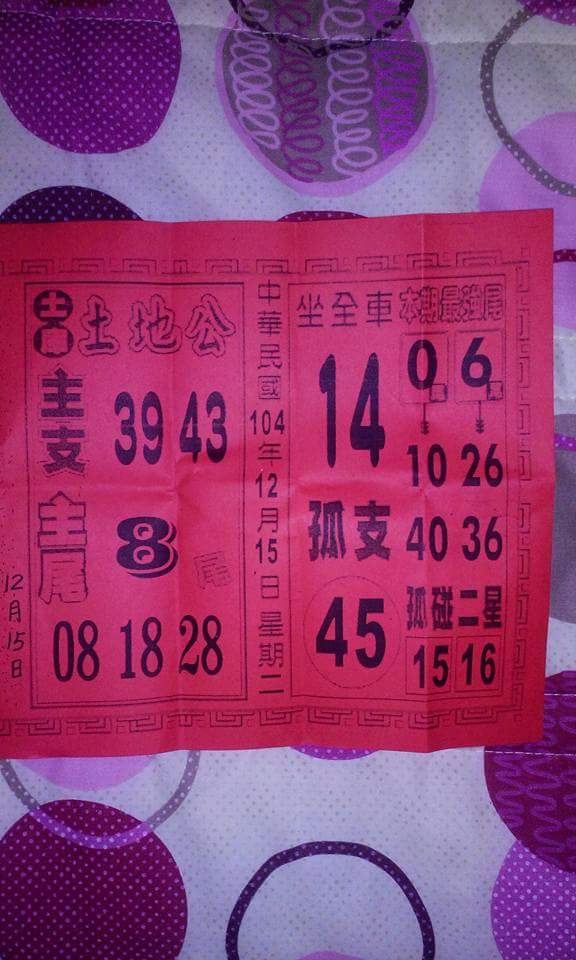 土地公
主支 39 43
主尾 8 尾
08 18 28
中華民國104年12月15日星期二
坐全車
14
孤支
45
本期最強尾
0尾 6尾
10 26
40 36
孤碰二星
15 16
12月15日